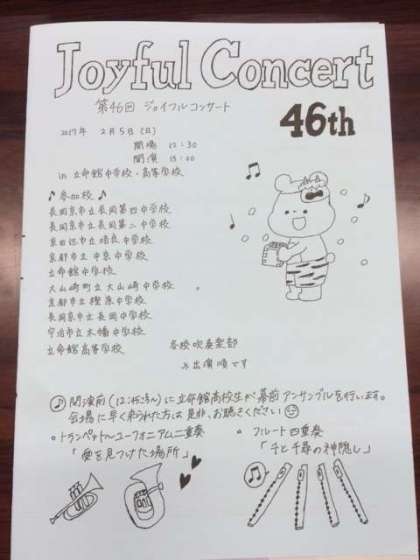 Joyful Concert
第46回 ジョイフルコンサート
46th
2017年 2月5日(日)
開場 12:30
開演 13:00
in 立命館中学校・高等学校
♪参加校♪
長岡京市立長岡第四中学校
長岡京市立長岡第二中学校
京田辺市立培良中学校
京都市立中京中学校
立命館中学校
大山崎町立大山崎中学校
京都市立樫原中学校
長岡京市立長岡中学校
宇治市立木幡中学校
立命館高等学校
各校吹奏楽部
※出演順です
開演前(12:45ごろ)に立命館高校生が幕前アンサンブルを行います。
会場に早く来られた方は是非、お聴きください
・トランペット・ユーフォニアム二重奏
「愛を見つけた場所」
・フルート四重奏
「千と千尋の神隠し」